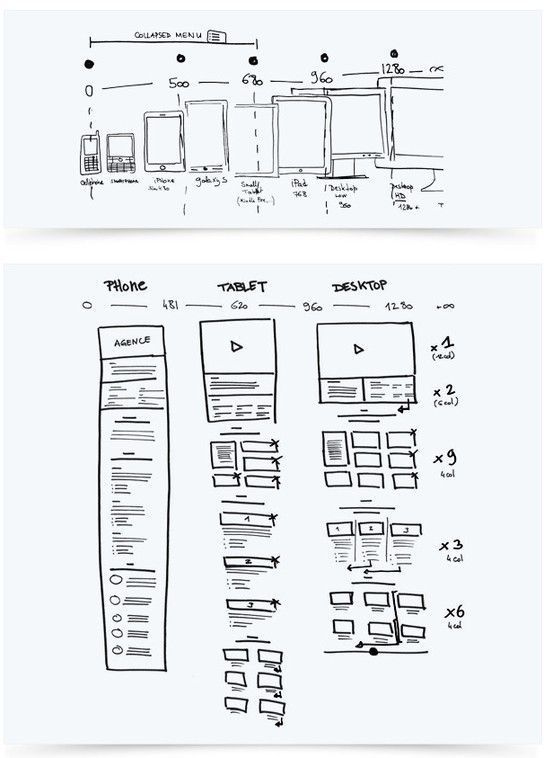 COLLAPSED MENU
0 500 680 960 1280 ∞
cellphone smartphone iPhone galaxy S Small Tablet iPad 768 Desktop Low 960 Desktop HD 1280+
PHONE TABLET DESKTOP
0 481 620 960 1280 +∞
AGENCE
x1
(12col)
x2
(6col)
x9
4col
1
1 2 3
x3
4col
2
3
x6
4col